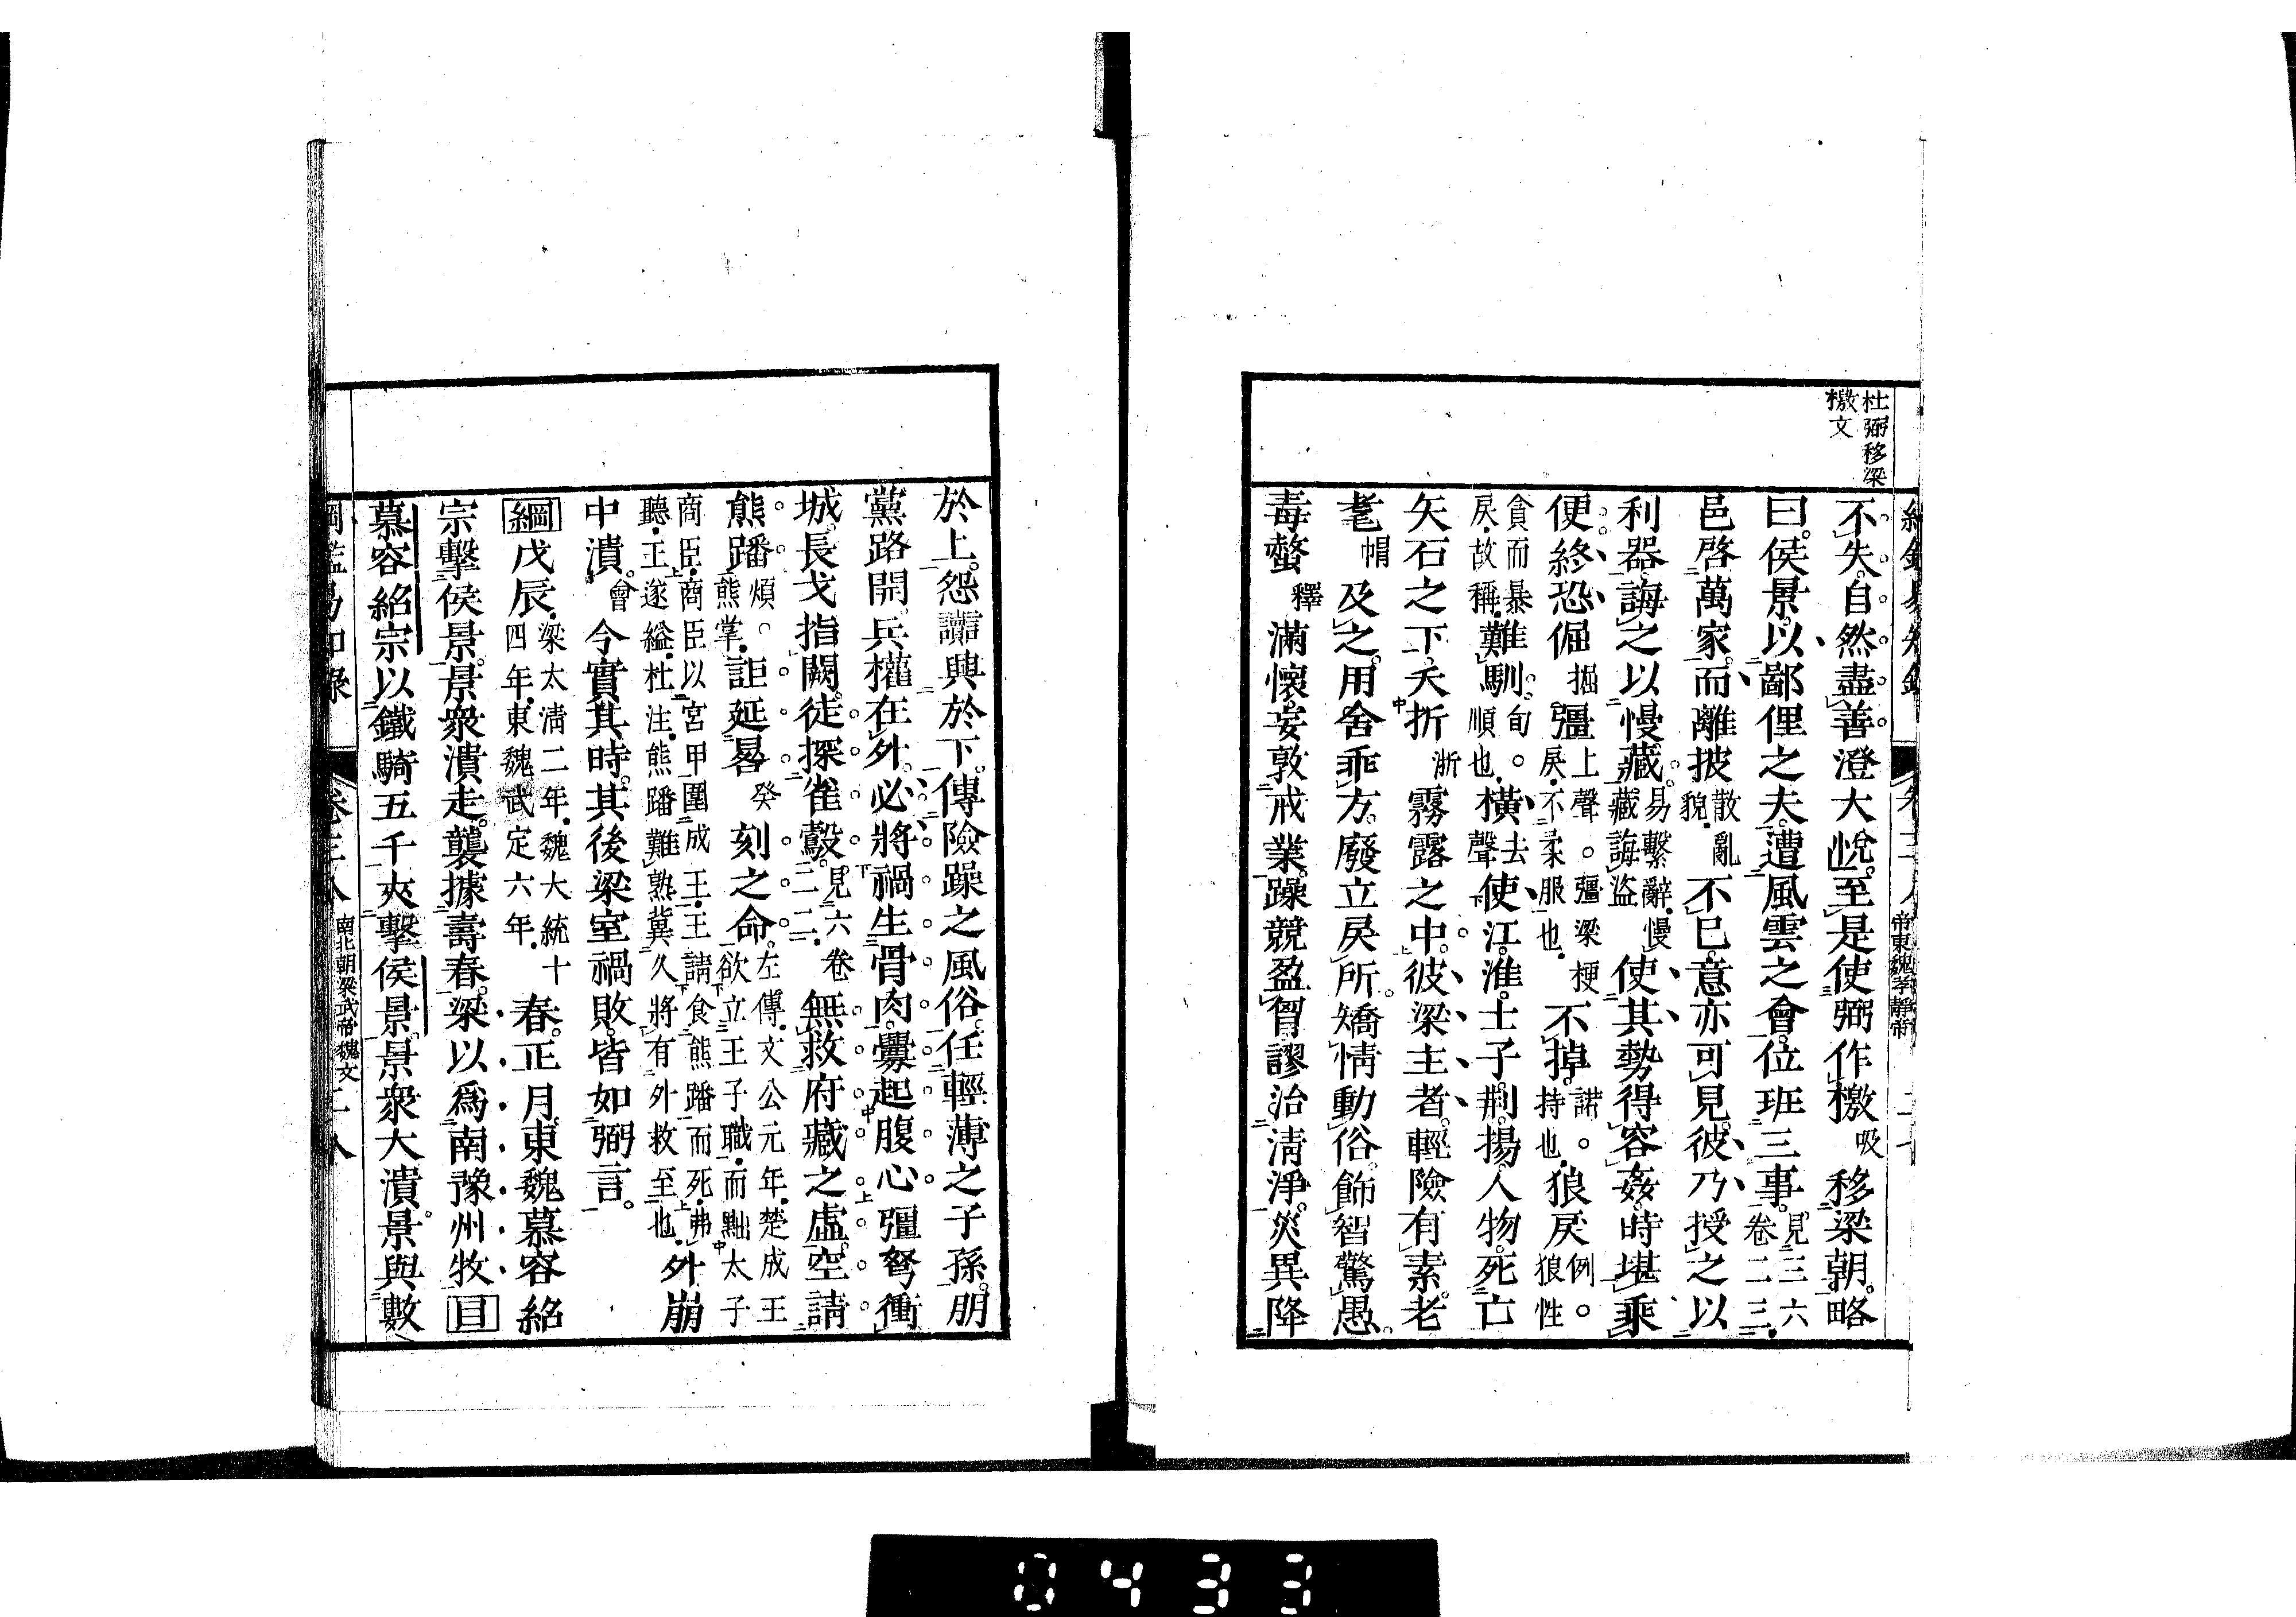 杜弼移梁
檄文
不失自然盡善澄大悅至是使弼作檄吸移梁朝略
曰侯景以鄙俚之夫遭風雲之會位班三事見三六卷二三
邑啓萬家而離披散亂貌不已意亦可見彼乃授之以
利器誨之以慢藏易繫辭慢藏誨盜使其勢得容姦時堪乘
便終恐倔掘彊上聲彊梁梗戾不柔服也不掉諾持也狼戾例狼性
貪而暴戾故稱難馴旬順也橫去聲使江淮士子荆揚人物死亡
矢石之下夭折淅霧露之中彼梁主者輕險有素老
耄帽及之用舍乖方廢立戾所矯情動俗飾智驚愚
毒螫釋滿懷妄敦戒業躁競盈胷謬治淸淨災異降
帝東魏孝靜帝
於上怨讟興於下傳險躁之風俗任輕薄之子孫朋
黨路開兵權在外必將禍生骨肉釁起腹心彊弩衝
城長戈指闕徒探雀鷇見六卷二二無救府藏之虛空請
熊蹯煩熊掌詎延晷癸刻之命左傳文公元年楚成王欲立王子職而黜太子
商臣商臣以宮甲圍成王王請食熊蹯而死弗聽王遂縊杜注熊蹯難熟冀久將有外救至也外崩
中潰會今實其時其後梁室禍敗皆如弼言
綱戊辰梁太淸二年魏大統十四年東魏武定六年春正月東魏慕容紹
宗擊侯景景衆潰走襲據壽春梁以爲南豫州牧目
慕容紹宗以鐵騎五千夾擊侯景景衆大潰景與數
卷三八
南北朝梁武帝魏文
0433